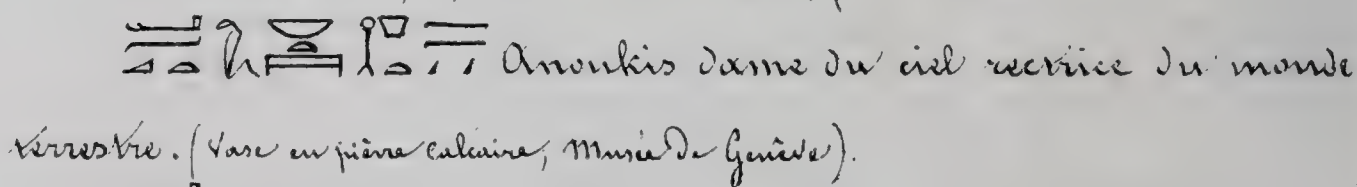 Anoukis dame du ciel rectrice du monde
terrestre. (Vase en pierre calcaire, Musée de Genève).